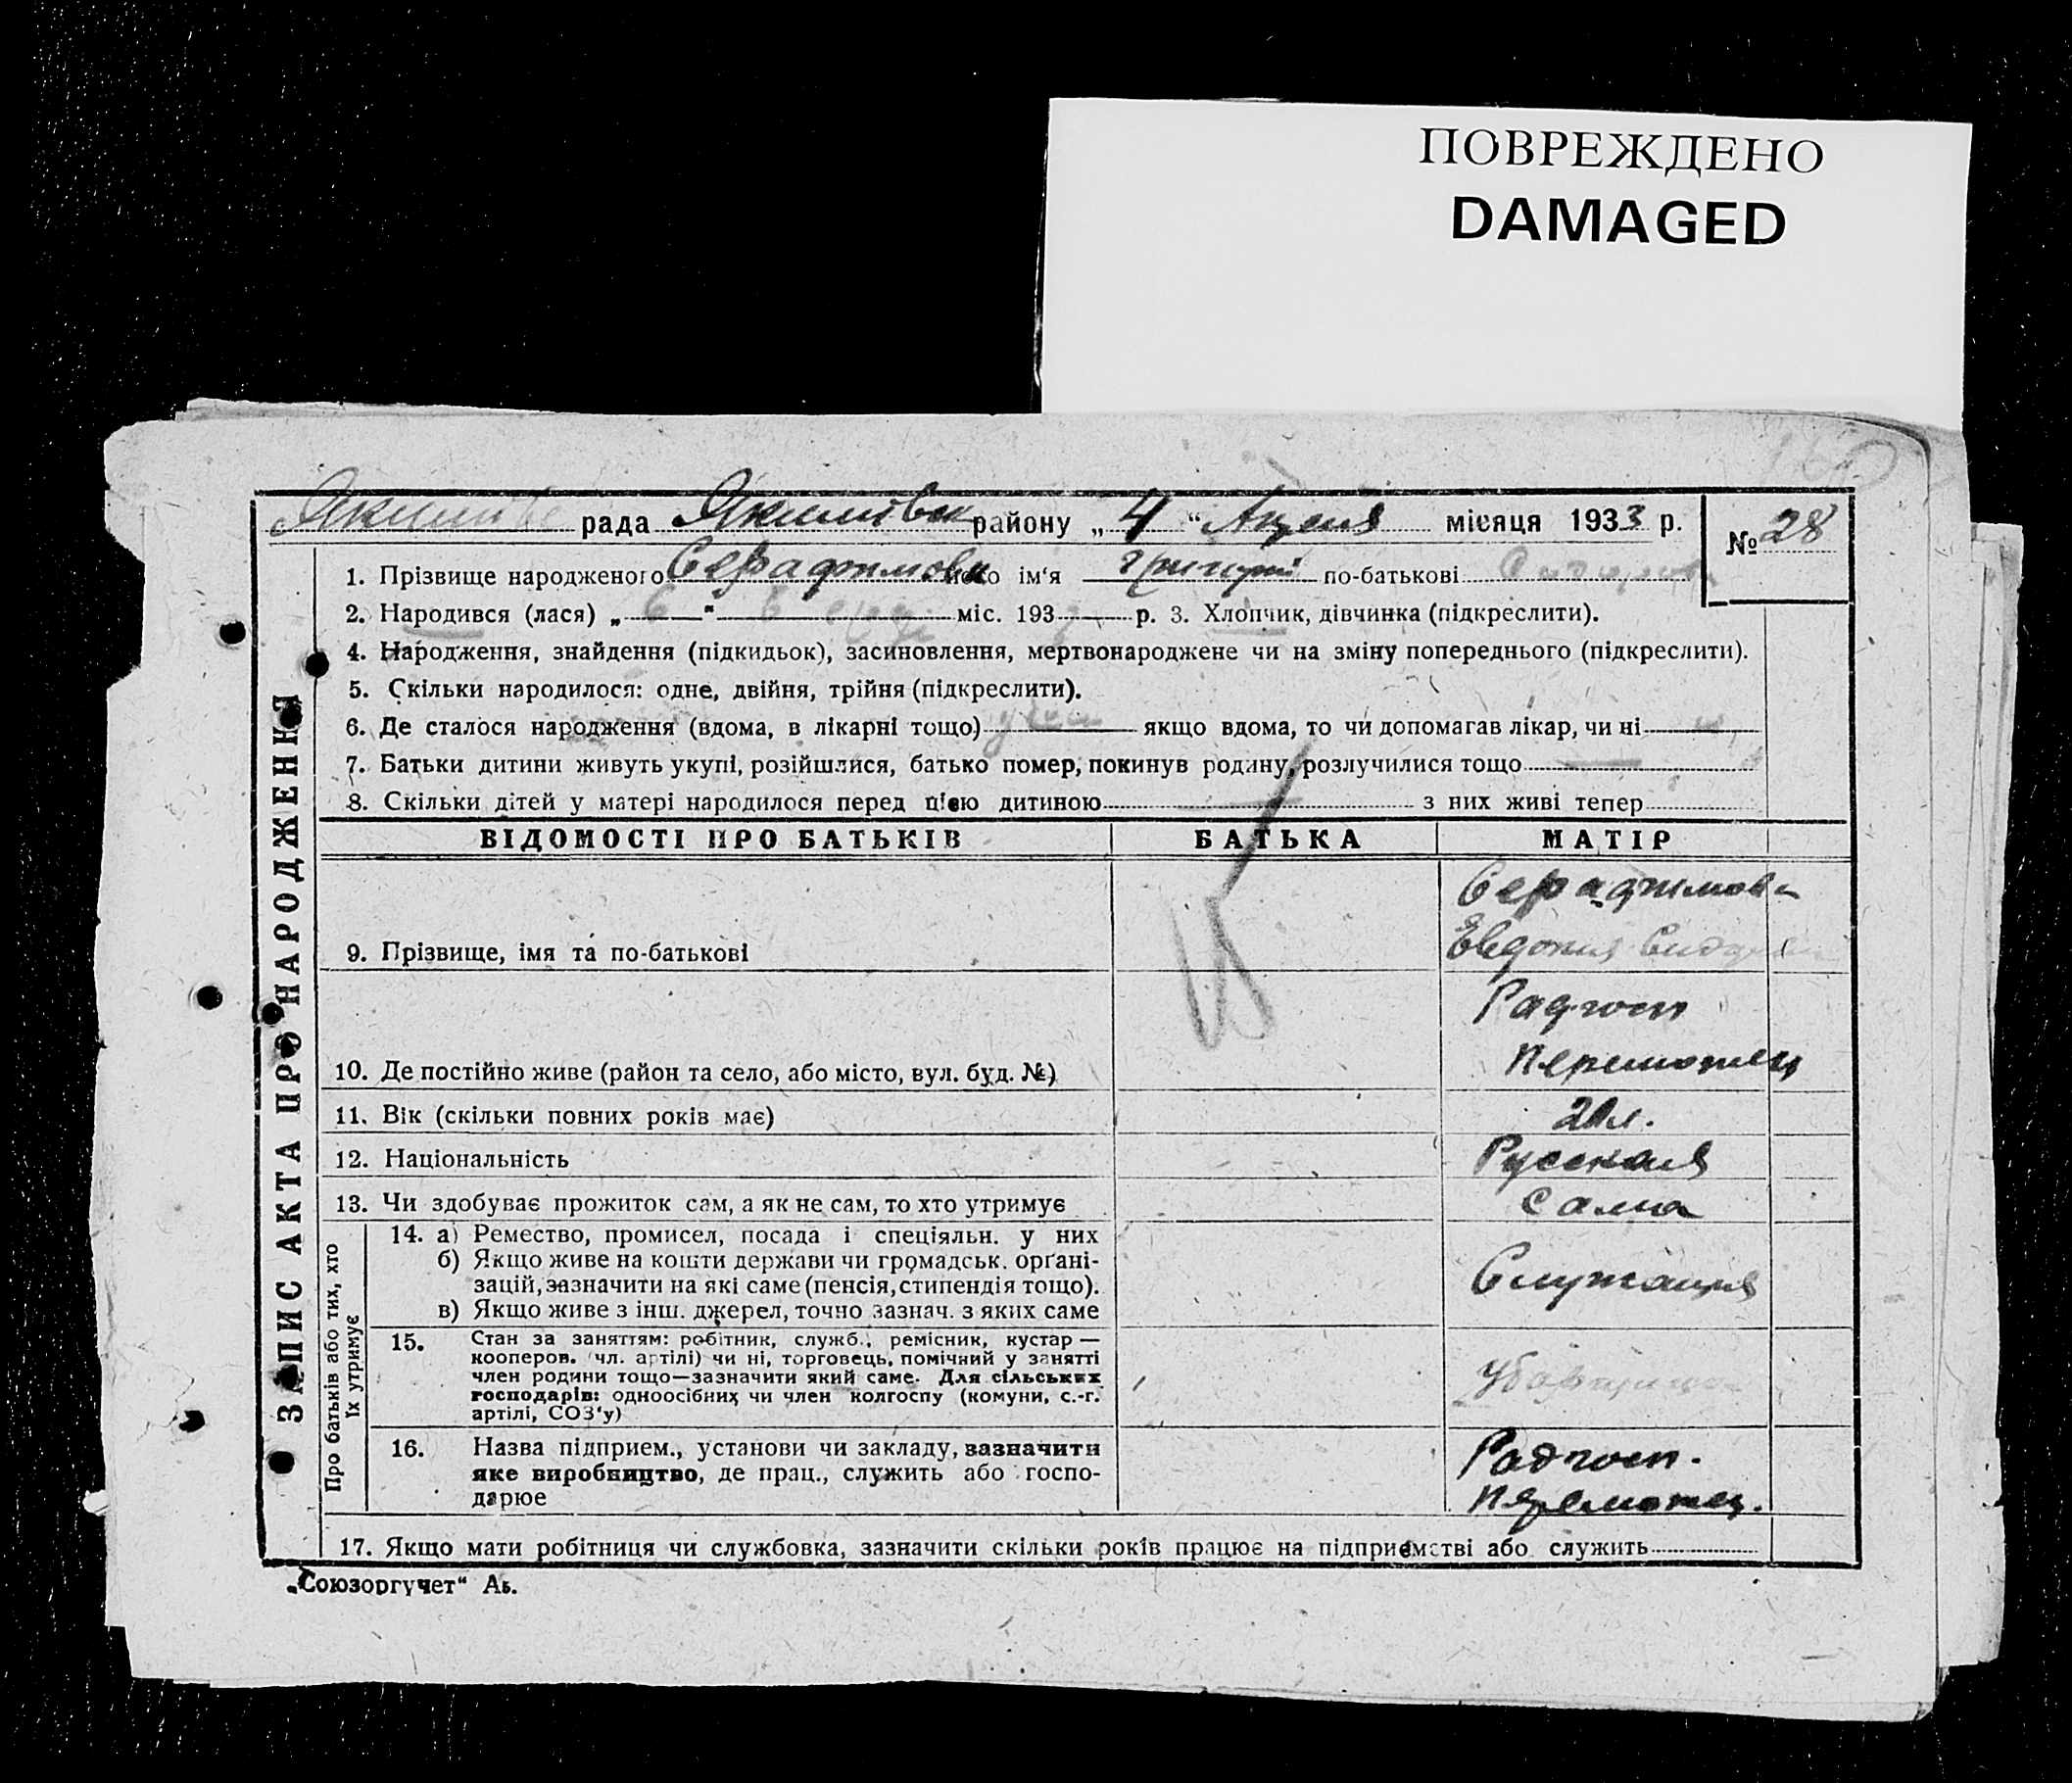 ПОВРЕЖДЕНО
DAMAGED
рада Якимівск району „ 4 “ Апреля місяця 1933 р.
№ 28
1. Прізвище народженого Серафимова його ім‘я Григорій по-батькові
2. Народився (лася) „ 6 “ міс. 193 р. 3. Хлопчик, дівчинка (підкреслити).
4. Народження, знайдення (підкидьок), засиновлення, мертвонароджене чи на зміну попереднього (підкреслити).
5. Скільки народилося: одне, двійня, трійня (підкреслити).
6. Де сталося народження (вдома, в лікарні тощо) якщо вдома, то чи допомагав лікар, чи ні
7. Батьки дитини живуть укупі, розійшлися, батько помер, покинув родину, розлучилися тощо
8. Скільки дітей у матері народилося перед цією дитиною — з них живі тепер
ЗАПИС АКТА ПРО НАРОДЖЕННЯ
ВІДОМОСТІ ПРО БАТЬКІВ БАТЬКА МАТІР
9. Прізвище, імя та по-батькові
Серафимова
Евдокия
10. Де постійно живе (район та село, або місто, вул. буд. №)
Радгосп
Переможец
11. Вік (скільки повних років має)
12. Національність Русская
13. Чи здобуває прожиток сам, а як не сам, то хто утримує Сама
Про батьків або тих, хто
їх утримує
14. а) Ремество, промисел, посада і спеціяльн. у них
б) Якщо живе на кошти держави чи громадськ. орґані-
зацій, зазначити на які саме (пенсія, стипендія тощо).
в) Якщо живе з інш. джерел, точно зазнач. з яких саме
Служащия
15. Стан за заняттям: робітник, служб., ремісник, кустар —
кооперов. чл. артілі) чи ні, торговець, помічний у занятті
член родини тощо—зазначити який саме. Для сільських
господарів: одноосібних чи член колгоспу (комуни, с.-г.
артілі, СОЗ'у)
Уборщица
16. Назва підприєм., установи чи закладу, зазначити
яке виробництво, де прац., служить або госпо-
дарює
Радгосп.
Переможец.
17. Якщо мати робітниця чи службовка, зазначити скільки років працює на підприємстві або служить
„Союзоргучет“ Аь.